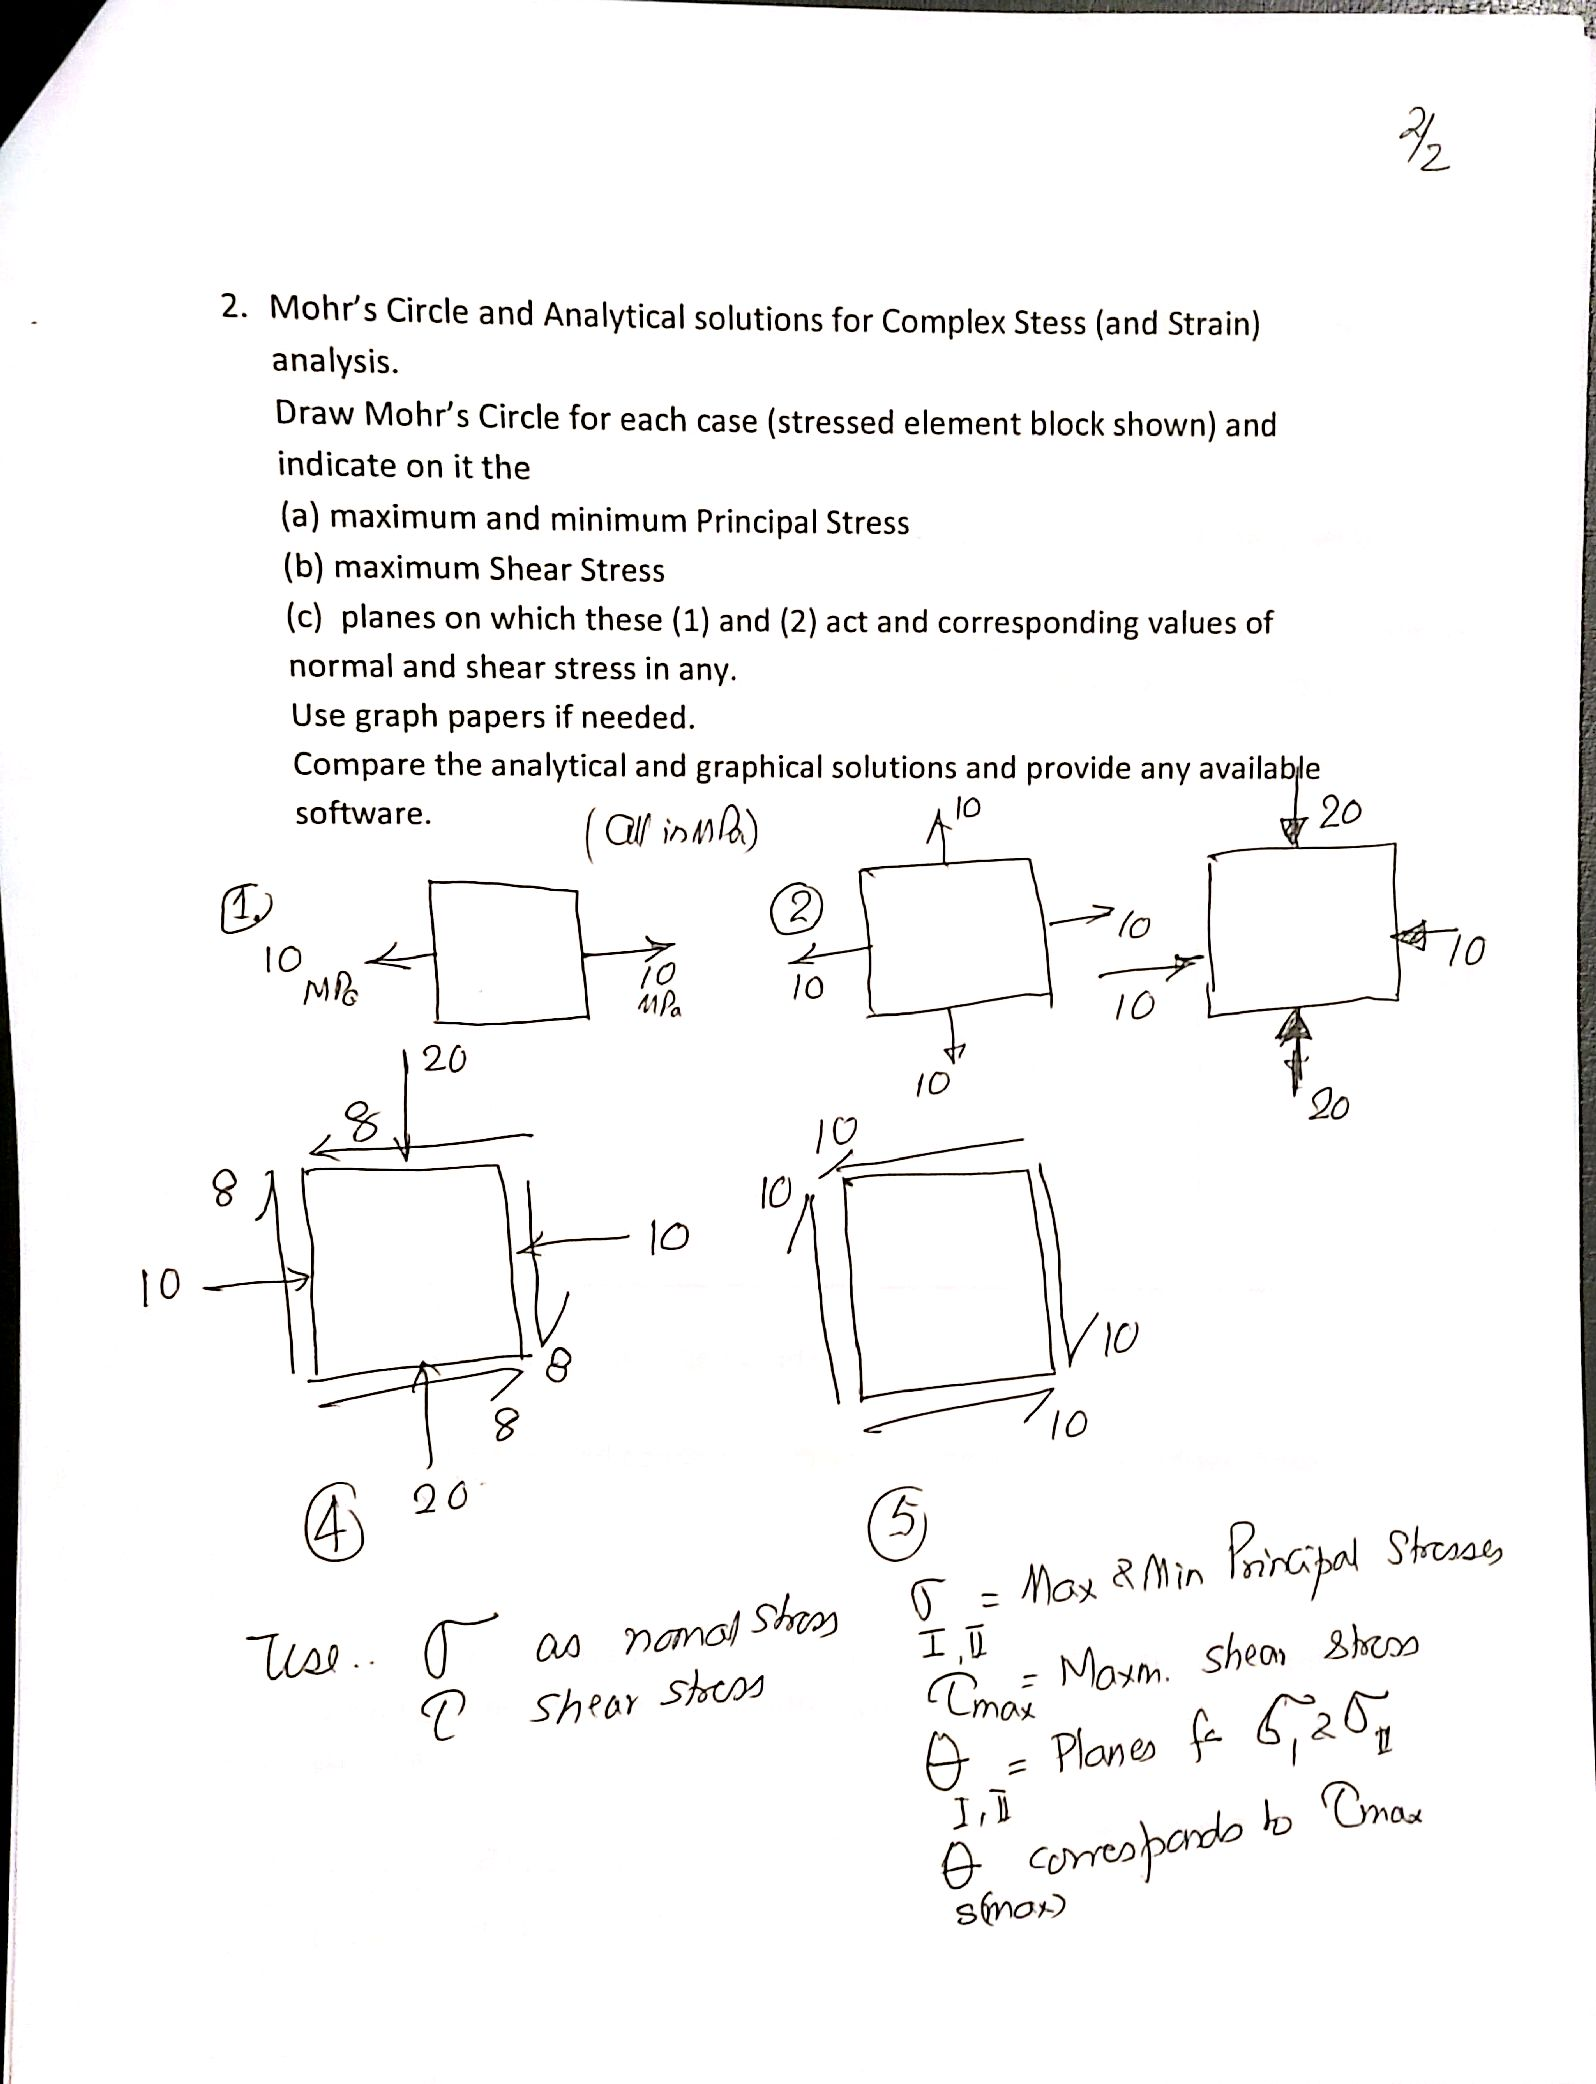 2/2
2. Mohr's Circle and Analytical solutions for Complex Stess (and Strain)
analysis.
Draw Mohr's Circle for each case (stressed element block shown) and
indicate on it the
(a) maximum and minimum Principal Stress
(b) maximum Shear Stress
(c) planes on which these (1) and (2) act and corresponding values of
normal and shear stress in any.
Use graph papers if needed.
Compare the analytical and graphical solutions and provide any available
software.
(all in MPa)
1.
10
MPa
10
MPa
2
10
10
10
10
20
10
10
20
20
8
8
10
10
8
8
20
4
10
10
10
10
5
Use.. σ as normal stress
τ shear stress
σ I, II = Max & Min Principal Stresses
τmax = Maxm. shear stress
θ I, II = Planes for σI & σII
θ s(max) corresponds to τmax